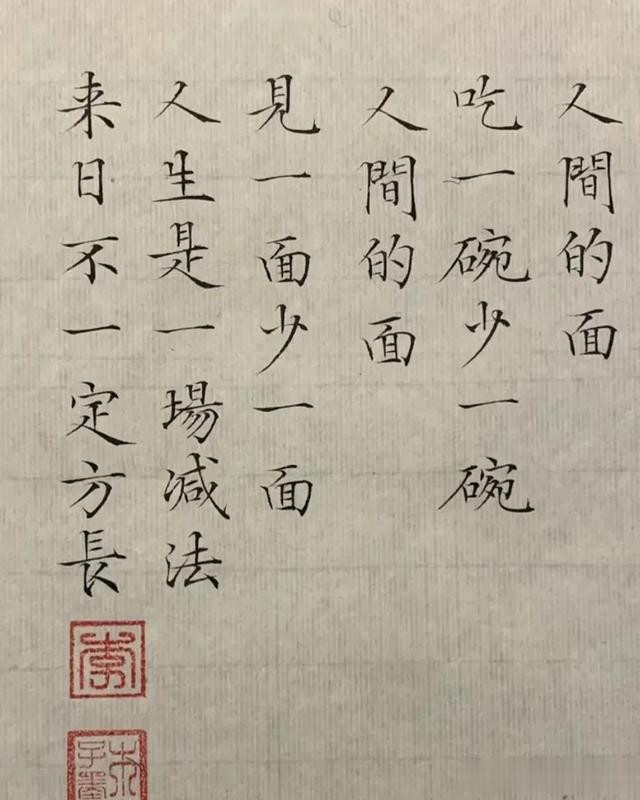 人間的面
吃一碗少一碗
人間的面
見一面少一面
人生是一場减法
来日不一定方長
李